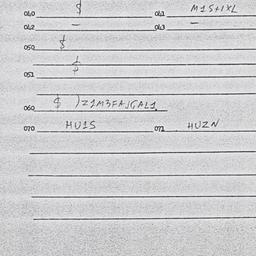 040 $ 041 M1S+1XL
042 – 043 –
050 $
051 $
060 $ )Z1M3FAJGAL1
070 HU1S 071 HUZN